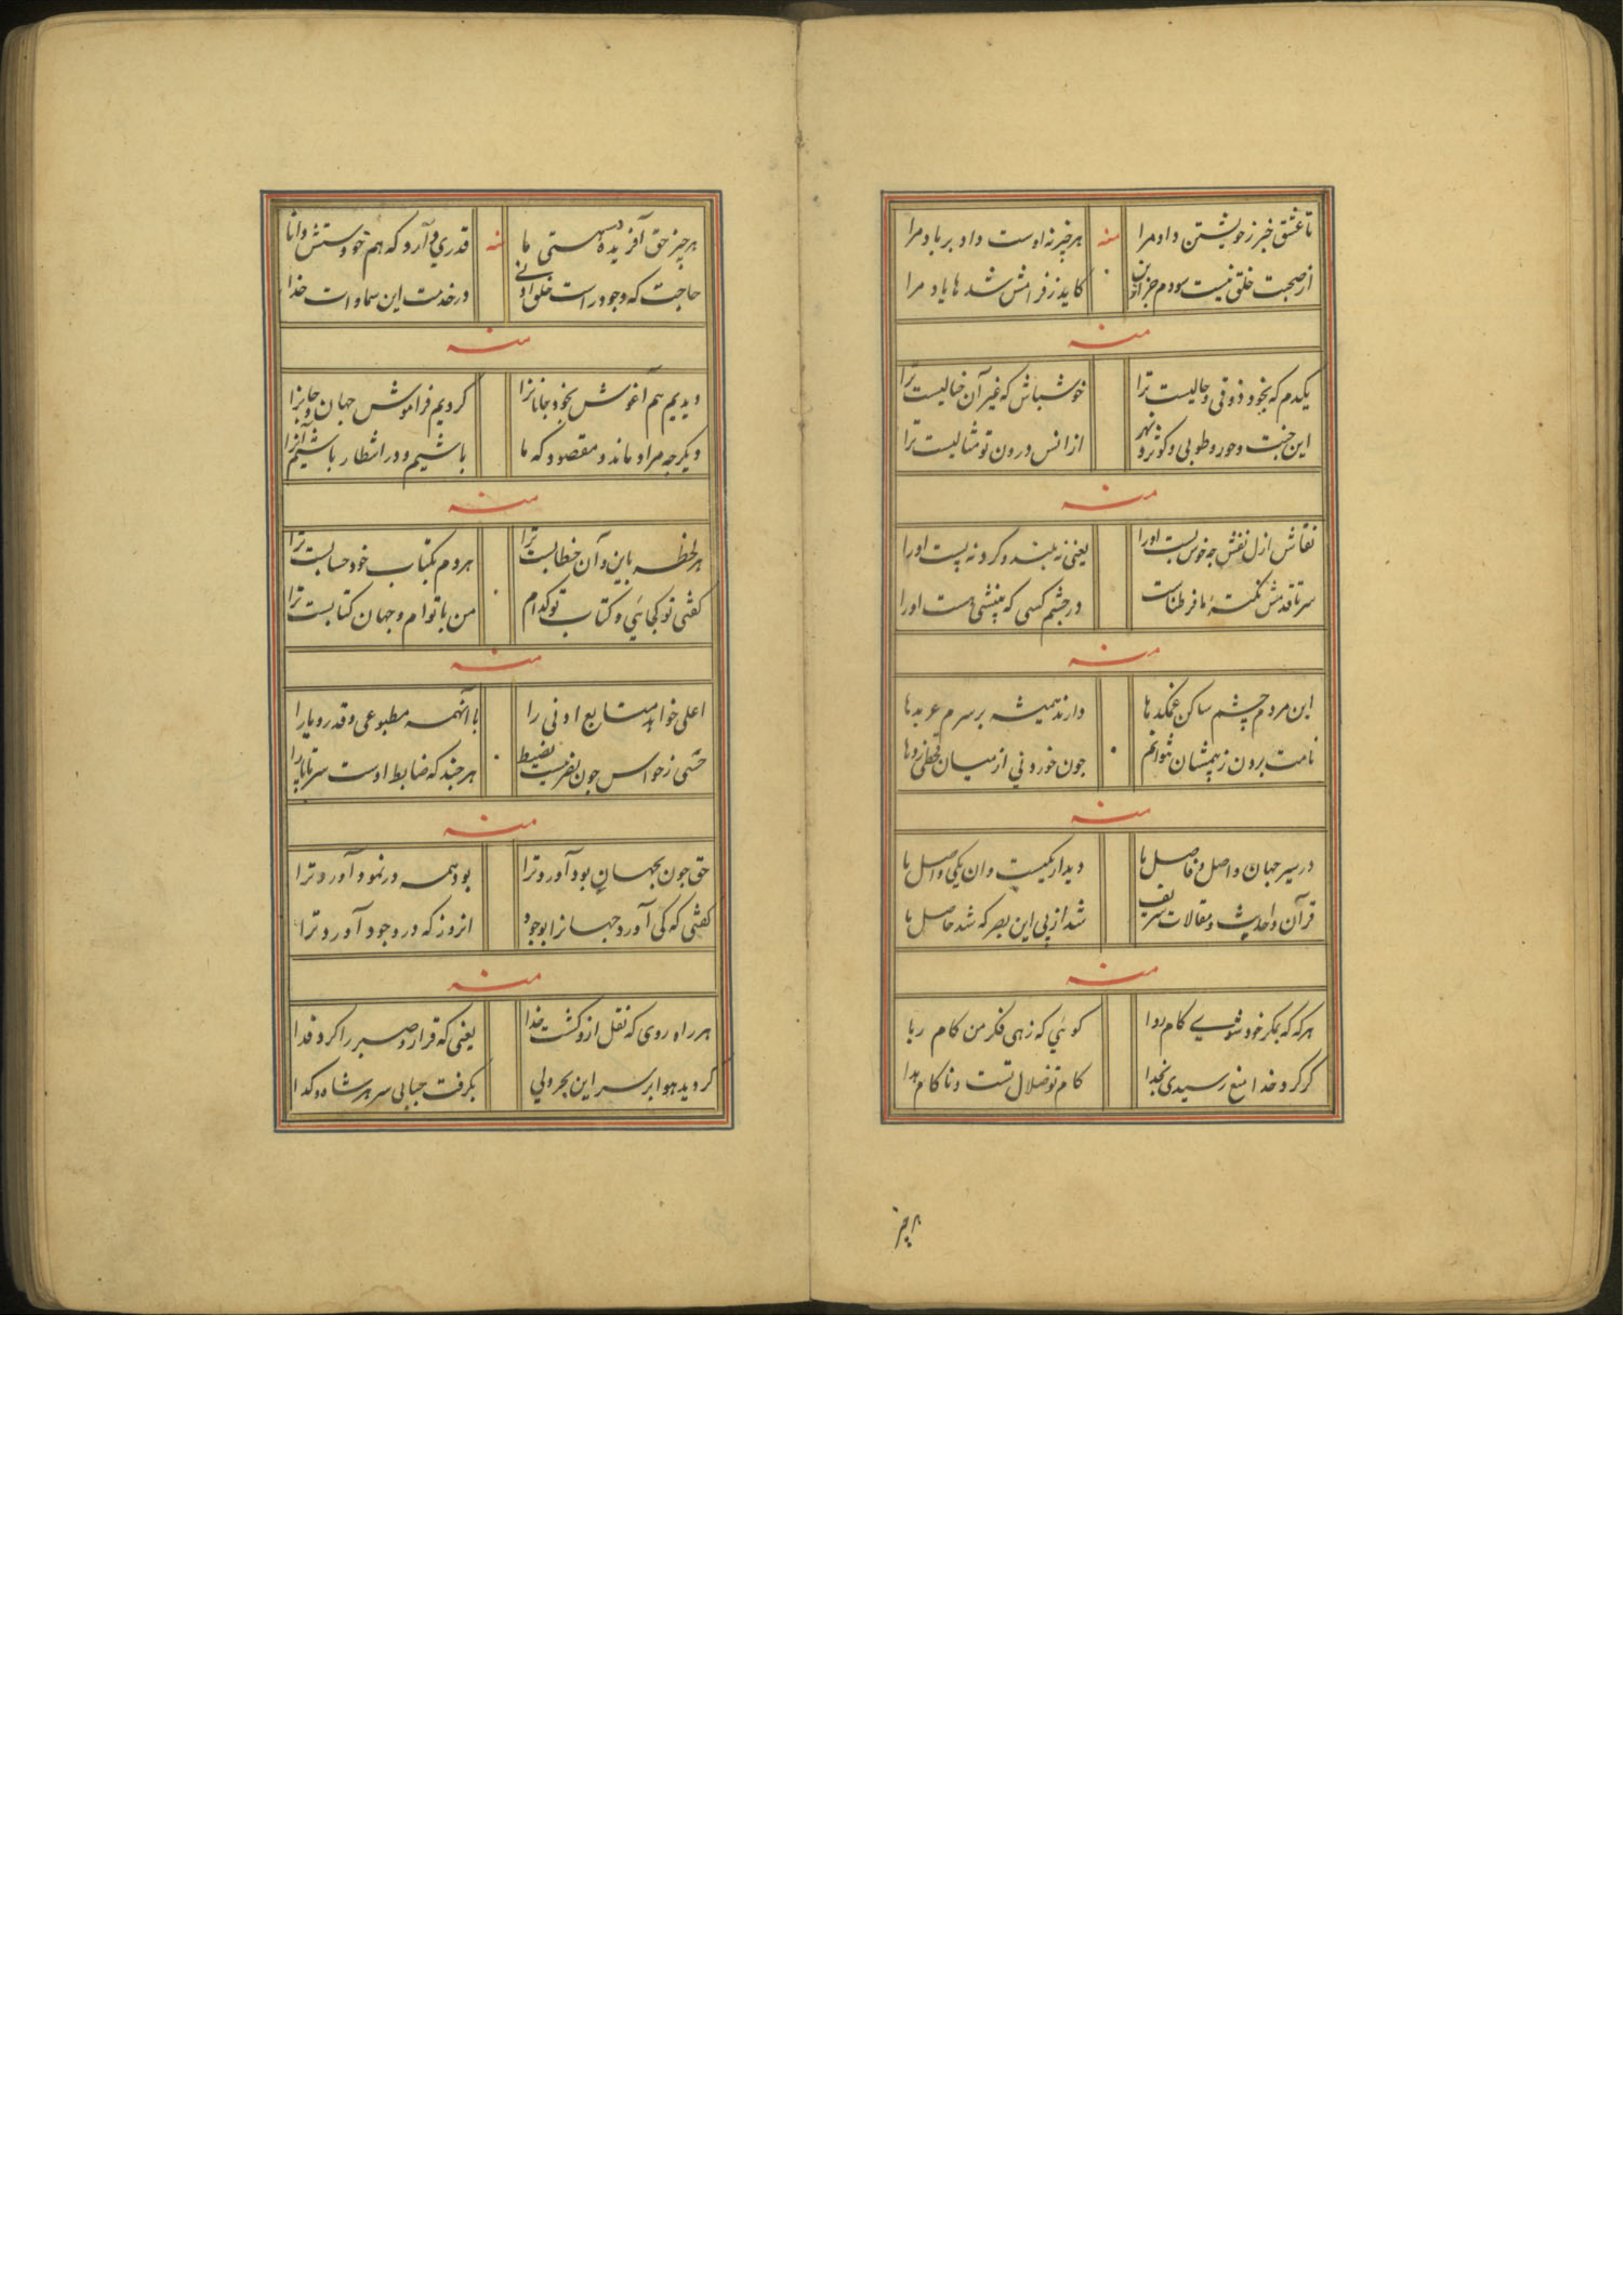 تا عشق خبر ز خویشتن داد مرا
منه
هر چیز نه اوست داد بر باد مرا
از صحبت خلق نیست سودم جز این
کاید ز فرامش شدها یاد مرا
منه
یکدم که بخود ذوقی و حالیست ترا
خوشباش که غیر آن خیالیست ترا
این جنت و حور و طوبی و کوثر و نهر
از انس درون تو مثالیست ترا
منه
نقاش ازل نقش چه خوش بست اورا
یعنی نه بلند و کرد نه پست اورا
سر تا قدمش نکته
در چشم کسی که بینشی هست اورا
منه
این مردم چشم ساکن غمکدها
دارند همیشه بر سرم عربدها
نامت برون ز بیمشان نتوانم
جون خوردنی از میان قحطی زدها
منه
در سیر جهان واصل و فاصل با
دیدار یکیست وان یکی واصل با
قرآن و احدیث و مقالات شریف
شد از پی این بصر که شد حاصل با
منه
هر که که بمکر خود شوی کام روا
کوئی که زهی فکر من کام ربا
کر کرد خدا منع رسیدی بخدا
کام تو ضلال تست و ناکام هدا
هر چیز
هر چیز حق آفریده در هستی ما
منه
قدری و آرد که هم خود دستش دانا
حاجت که وجود راست خلق اولی
در خدمت این سماوات خدا
منه
دیدیم هم آغوش بخود جانانرا
کردیم فراموش جهان و جانرا
دیکر چه مراد ماند و مقصود که ما
باشیم و در انتظار باشیم آنرا
منه
هر لحظه باین و آن خطابست ترا
هر دم بکتاب خود حسابست ترا
کفتی تو کجائی و کتاب تو کدام
من با توام و جهان کتابست ترا
منه
اعلی خواهد متابع ادنی را
با اینهمه مطبوعی و قدر و یارا
حسی ز حواس جون نفر نیست بضبط
هر چند که ضابط اوست سر تا پا را
منه
حق جون بجهان بود آورد ترا
بود همه در نمود آورد ترا
کفتی که کی آورد جهانرا بوجود
انروز که در وجود آورد ترا
منه
هر راه روی که نقل ازو کشت خدا
یعنی که قرار و صبر را کرد فدا
کردید هوا بر سر این بحر ولی
بکرفت حبابی سر هر شاه و کدا